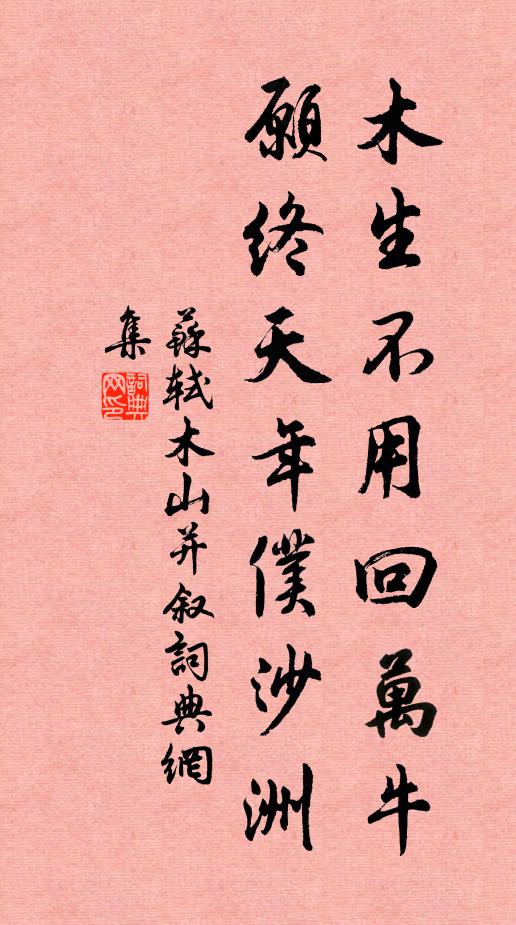 木生不用回萬牛
願終天年僕沙洲
蘇軾木山并叙詞典網
集
詞典網印